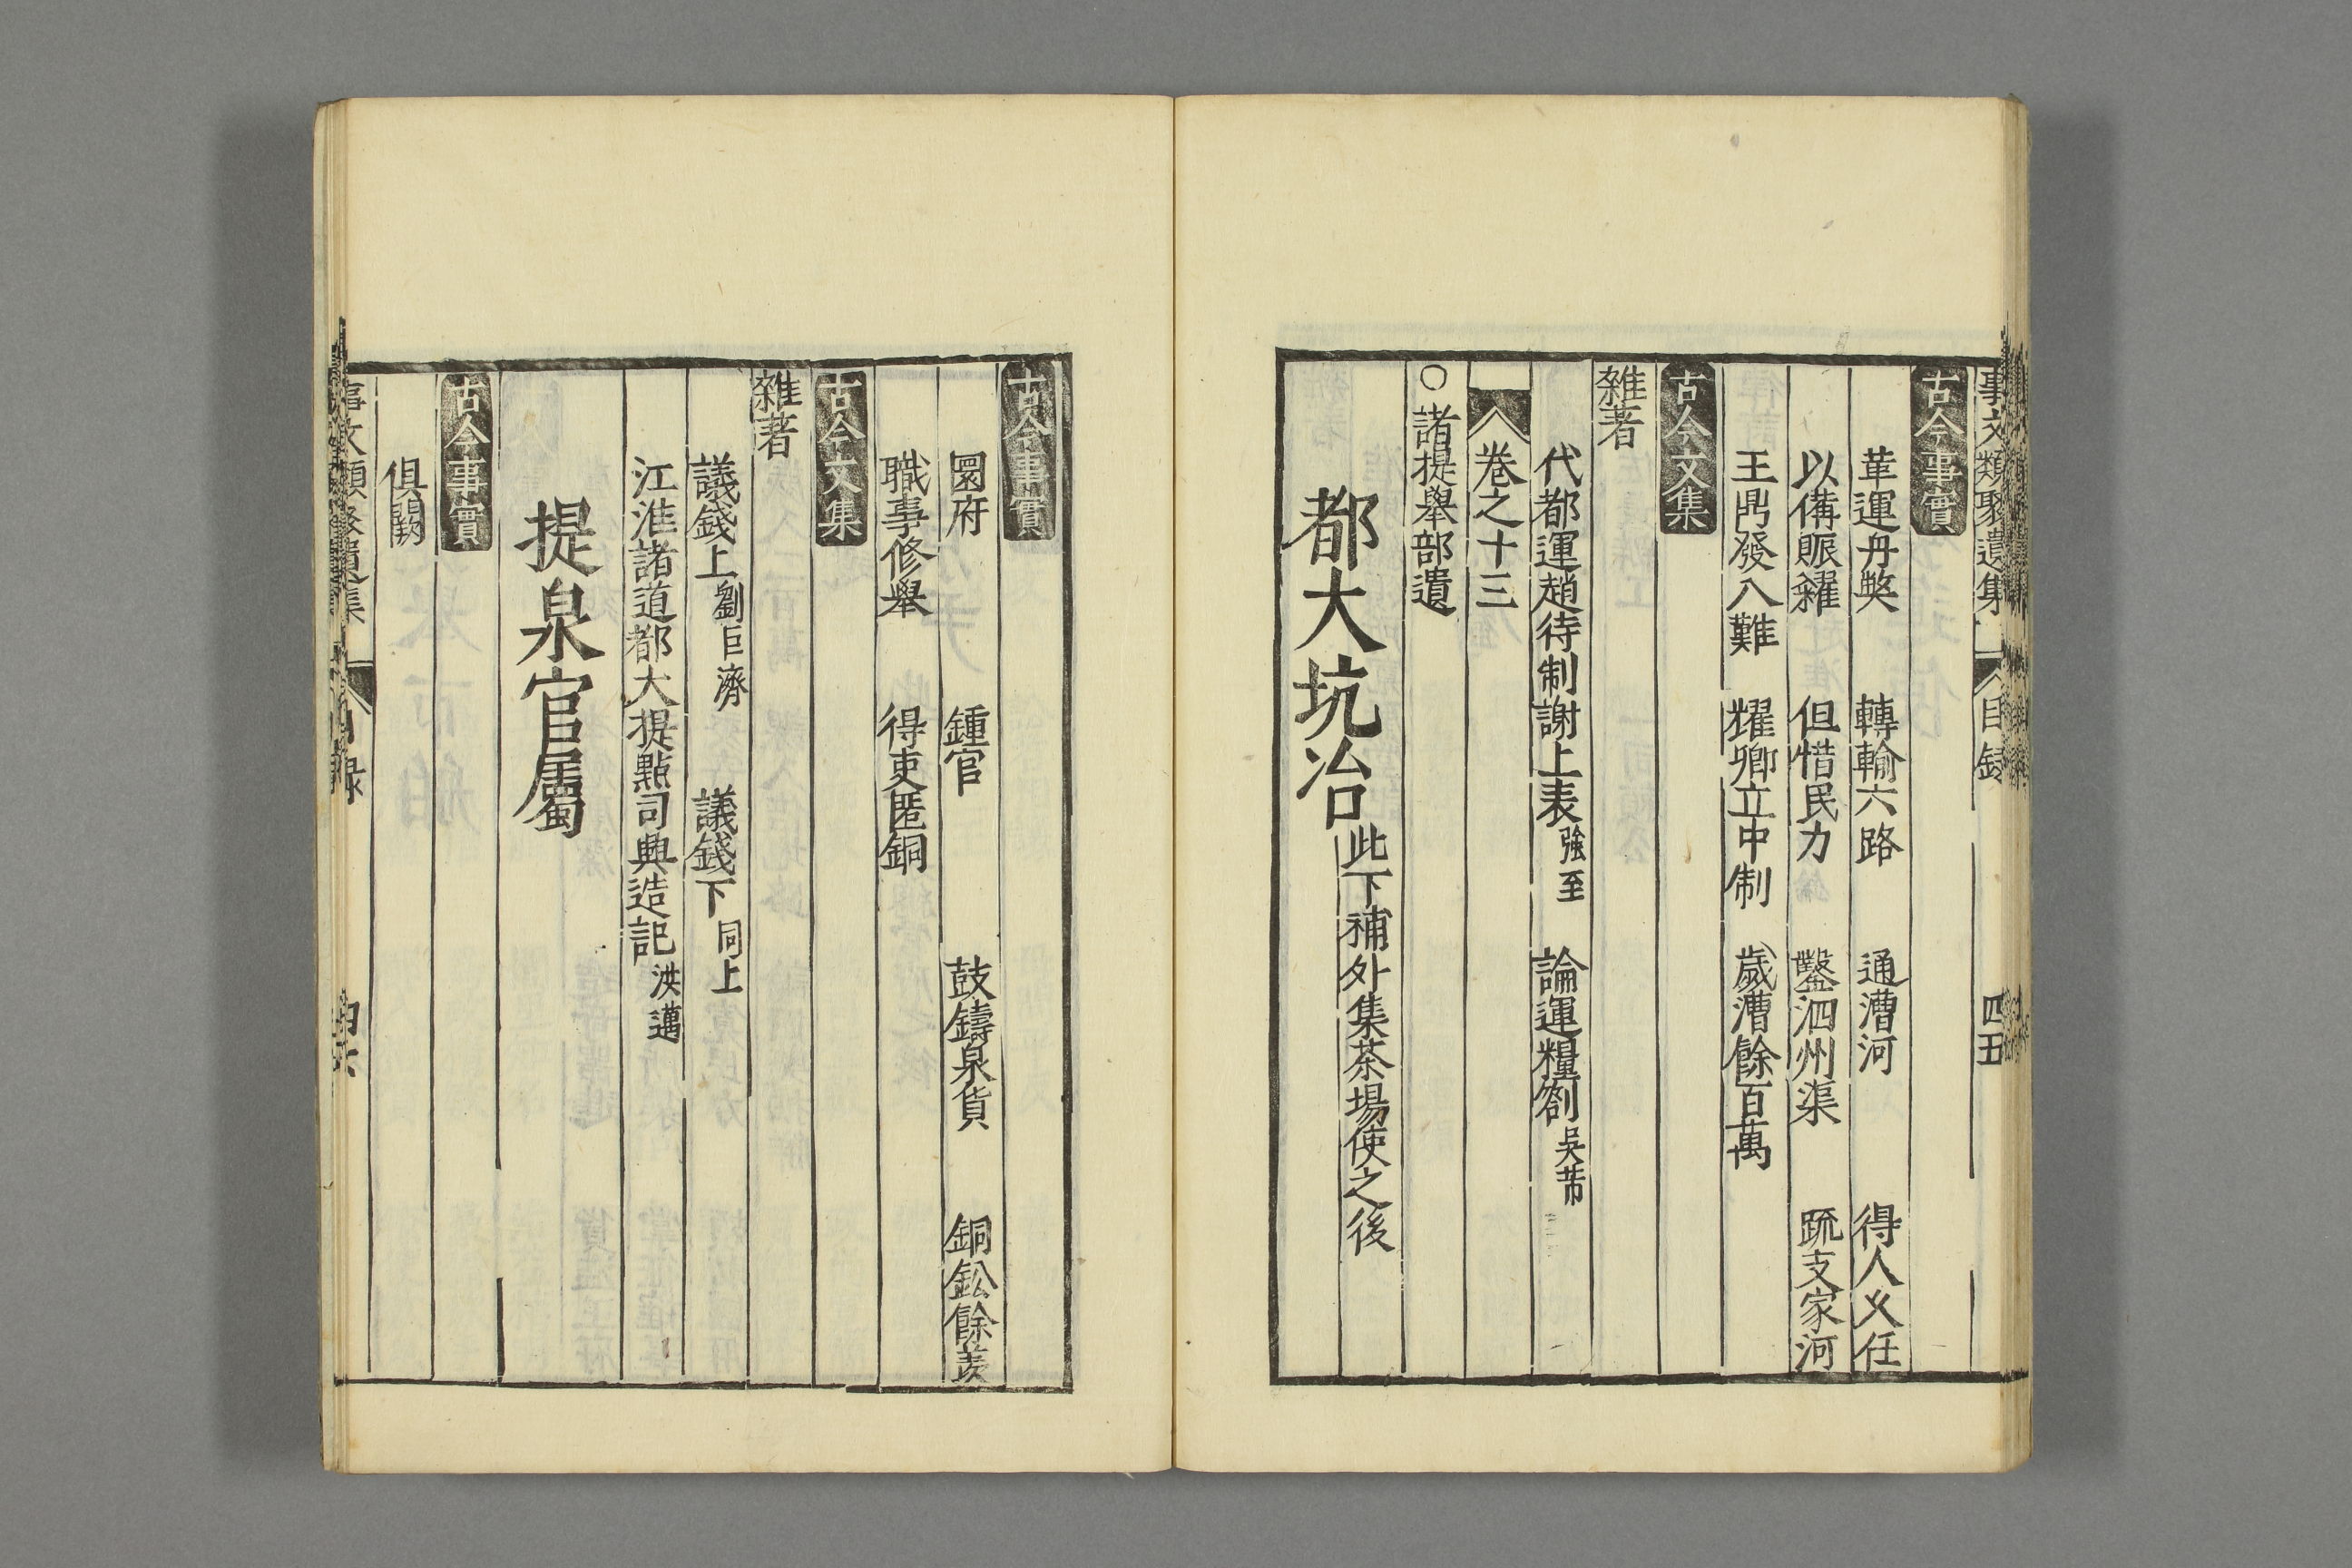 事文類聚遺集 目録 四五
古今事實
革運丹獘 轉輸六路 通漕河 得人乆任
以備賑糶 但惜民力 鑿泗州渠 䟽支家河
王鼎發八難 耀卿立中制 歲漕餘百萬
古今文集
雜著
代都運趙待制謝上表 強至 論運糧劄 吳芾
卷之十三
○諸提舉部遺
都大坑冶 此下補外集茶場使之後
古今事實
圜府 鍾官 鼓鑄泉貨 銅鈆餘羨
職事修舉 得吏匿銅
古今文集
雜著
議錢上 劉巨濟 議錢下 同上
江淮諸道都大提點司興造記 洪邁
提泉官屬
古今事實
俱闕
事文類聚遺集 目録